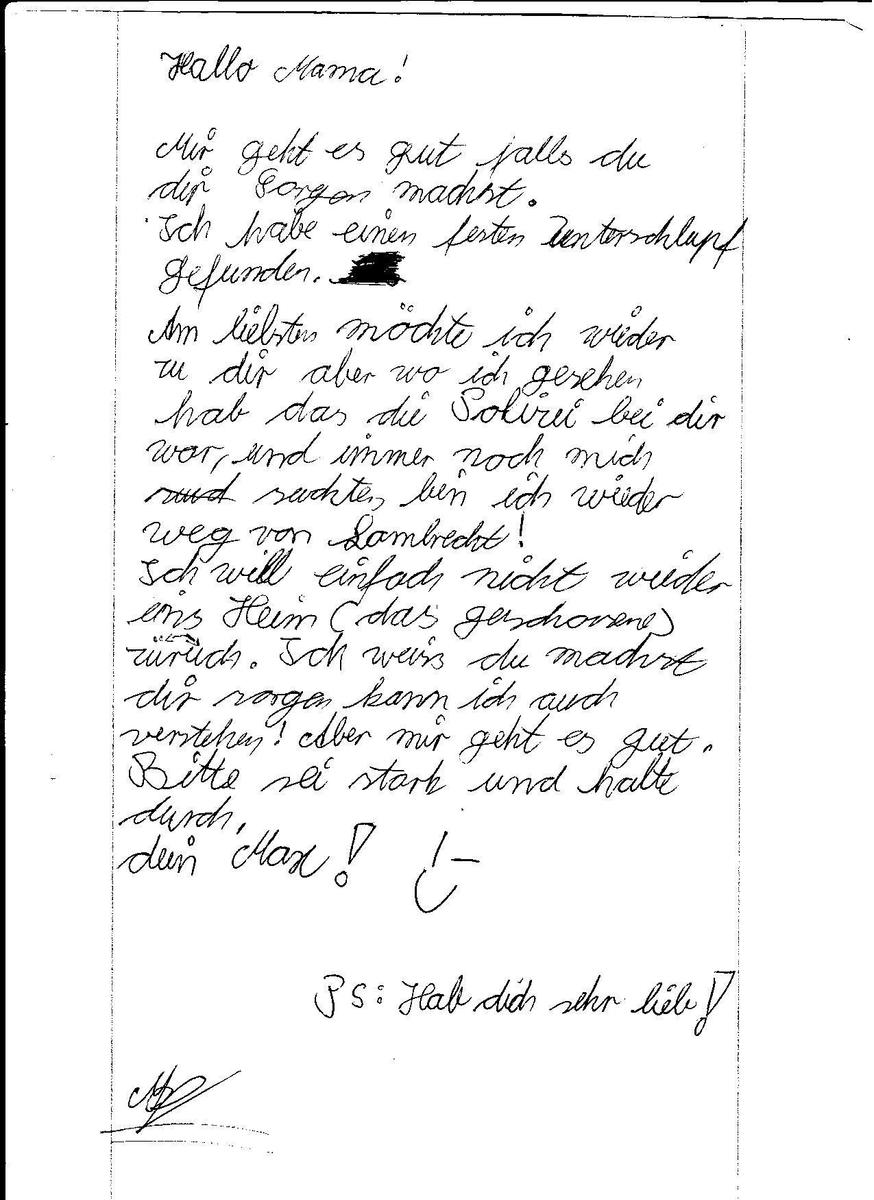 Hallo Mama!
Mir geht es gut falls du
dir Sorgen machst.
Ich habe einen festen Unterschlupf
gefunden.
Am liebsten möchte ich wieder
zu dir aber wo ich gesehen
hab das die Polizei bei dir
war, und immer noch mich
suchten, bin ich wieder
weg von Lambrecht!
Ich will einfach nicht wieder
ins Heim (das geschlossene)
zurück. Ich weiss du machst
dir sorgen kann ich auch
verstehen! Aber mir geht es gut.
Bitte sei stark und halte
durch,
dein Max!
PS: Hab dich sehr lieb!